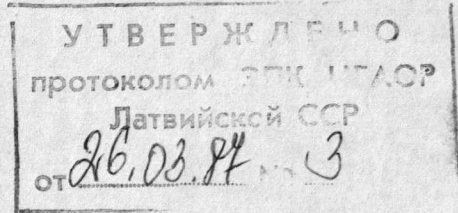 УТВЕРЖДЕНО
протоколом ЭПК ЦГАОР
Латвийской ССР
от 26.03.87 № 3